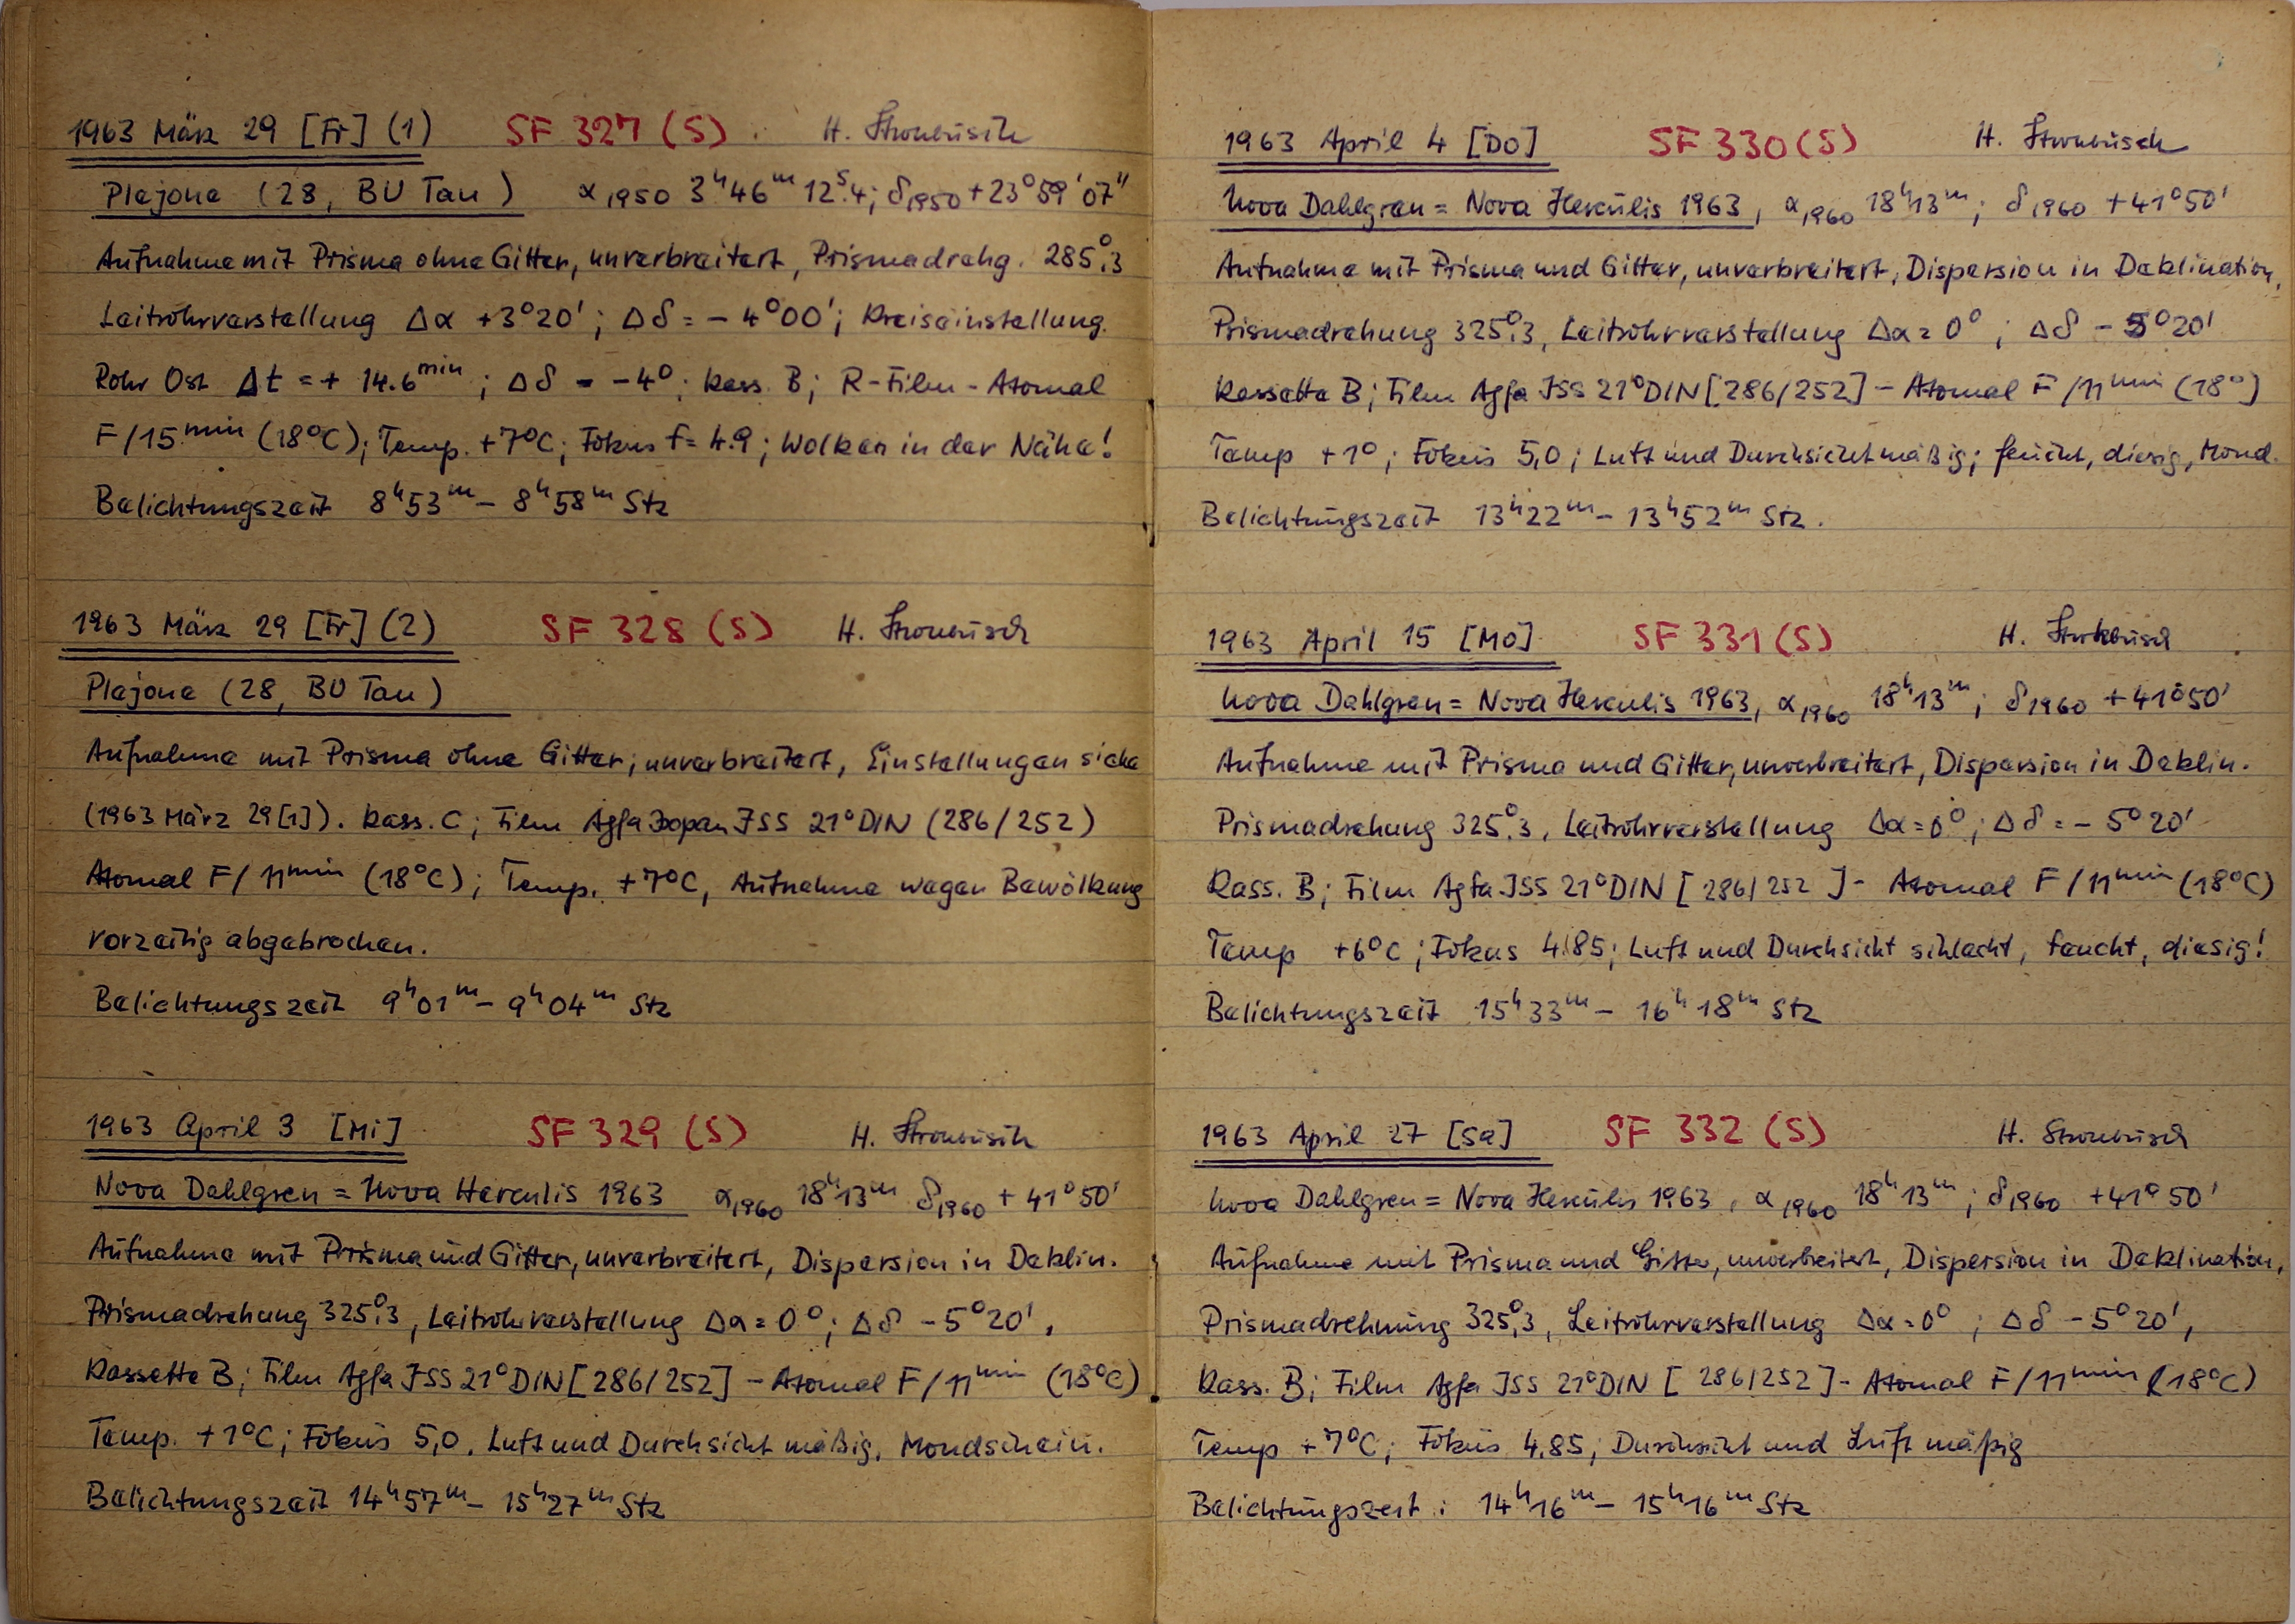 1963 März 29 [Fr] (1) SF 327 (S) H. Strohbusch
Plejone (28, BU Tau) α1950 3h46m12s.4; δ1950 +23°59'07"
Aufnahme mit Prisma ohne Gitter, unverbreitert, Prismadrehg. 285°.3
Leitrohrverstellung Δα +3°20'; Δδ = - 4°00'; Kreiseinstellung.
Rohr Ost Δt = + 14.6min; Δδ = -4°; Kass. B; R-Film - Atomal
F/15min (18°C); Temp. +7°C; Fokus f = 4.9; Wolken in der Nähe!
Belichtungszeit 8h53m - 8h58m Stz
1963 März 29 [Fr] (2) SF 328 (S) H. Strohbusch
Plejone (28, BU Tau)
Aufnahme mit Prisma ohne Gitter, unverbreitert, Einstellungen siehe
(1963 März 29[1]). Kass. C; Film Agfa Isopan ISS 21°DIN (286/252)
Atomal F/11min (18°C); Temp. +7°C, Aufnahme wegen Bewölkung
vorzeitig abgebrochen.
Belichtungszeit 9h01m - 9h04m Stz
1963 April 3 [Mi] SF 329 (S) H. Strohbusch
Nova Dahlgren = Nova Herculis 1963 α1960 18h13m δ1960 + 41°50'
Aufnahme mit Prisma und Gitter, unverbreitert, Dispersion in Deklin.
Prismadrehung 325°.3, Leitrohrverstellung Δα = 0°; Δδ -5°20',
Kassette B; Film Agfa ISS 21°DIN [286/252] - Atomal F/11min (18°C)
Temp. +1°C; Fokus 5,0, Luft und Durchsicht mäßig, Mondschein.
Belichtungszeit 14h57m - 15h27m Stz
1963 April 4 [Do] SF 330 (S) H. Strohbusch
Nova Dahlgren = Nova Herkulis 1963, α1960 18h13m; δ1960 +41°50'
Aufnahme mit Prisma und Gitter, unverbreitert, Dispersion in Deklination,
Prismadrehung 325°.3, Leitrohrverstellung Δα = 0°; Δδ - 5°20'
Kassette B; Film Agfa ISS 21°DIN [286/252] - Atomal F/11min (18°)
Temp +1°; Fokus 5,0; Luft und Durchsicht mäßig; feucht, diesig, Mond.
Belichtungszeit 13h22m - 13h52m Stz.
1963 April 15 [Mo] SF 331 (S) H. Strohbusch
Nova Dahlgren = Nova Herculis 1963, α1960 18h13m; δ1960 +41°50'
Aufnahme mit Prisma und Gitter, unverbreitert, Dispersion in Deklin.
Prismadrehung 325°.3, Leitrohrverstellung Δα = 0°; Δδ = - 5°20'
Kass. B; Film Agfa ISS 21°DIN [286/252] - Atomal F/11min (18°C)
Temp +6°C; Fokus 4.85; Luft und Durchsicht schlecht, feucht, diesig!
Belichtungszeit 15h33m - 16h18m Stz
1963 April 27 [Sa] SF 332 (S) H. Strohbusch
Nova Dahlgren = Nova Herkulis 1963, α1960 18h13m; δ1960 +41°50'
Aufnahme mit Prisma und Gitter, unverbreitert, Dispersion in Deklination,
Prismadrehung 325°.3, Leitrohrverstellung Δα = 0°; Δδ - 5°20',
Kass. B; Film Agfa ISS 21°DIN [286/252] - Atomal F/11min (18°C)
Temp +7°C; Fokus 4.85; Durchsicht und Luft mäßig
Belichtungszeit: 14h16m - 15h16m Stz